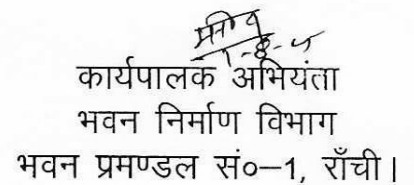 कार्यपालक अभियंता
भवन निर्माण विभाग
भवन प्रमण्डल सं०–1, राँची।